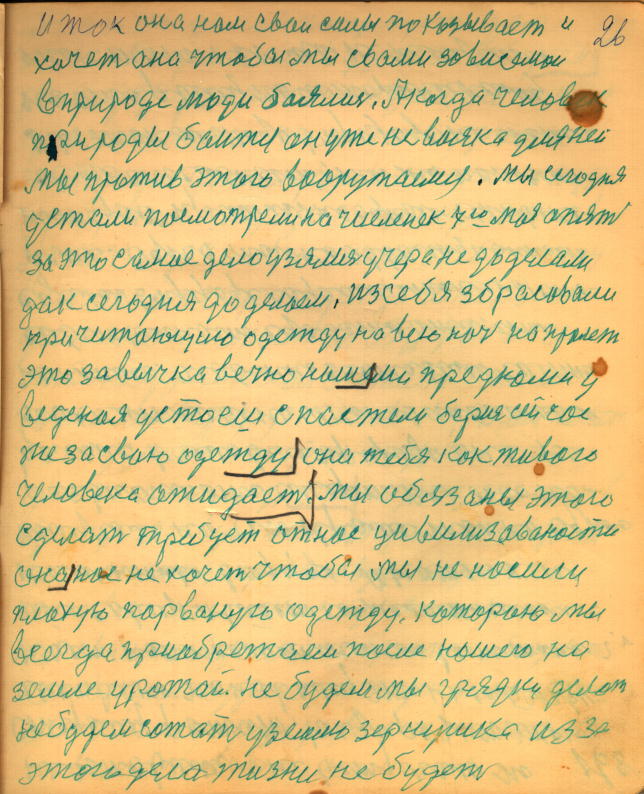 И так она нам свои силы показывает и 26
хочет она чтобы мы с вами зависемои
в природе люди боялися. А когда человек
природы боится он уже не вояка для ней
мы против этого вооружаемся. Мы сегодня
встали посмотрели на численек 7го мая опять
за это самое дело узялися учера не доделали
дак сегодня доделаем. Из себя збрасовали
причитающую одежду на всю ноч на пролет
это завычка вечно нашими предками у
веденая устоси с пастели берися сичас
же за сваю одежду она тебя как живого
человека ожидает. Мы обязаны этого
сделат требует от нас цивилизованости
она нас не хочет чтобы мы не носили
плохую парваную одежду. которою мы
всегда приобретаем после нашего на
земле урожай не будем мы грядки делат
не будем сажат у землю зернушка из за
этого дела жизни не будет